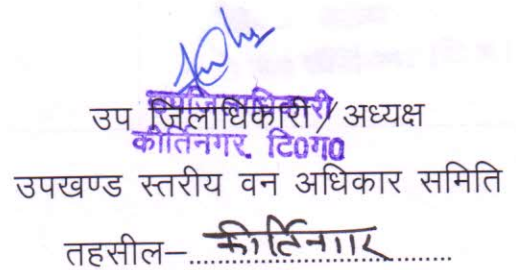 उपजिलाधिकारी
उप जिलाधिकारी / अध्यक्ष
कीर्तिनगर, टि०ग०
उपखण्ड स्तरीय वन अधिकार समिति
तहसील–कीर्तिनगर